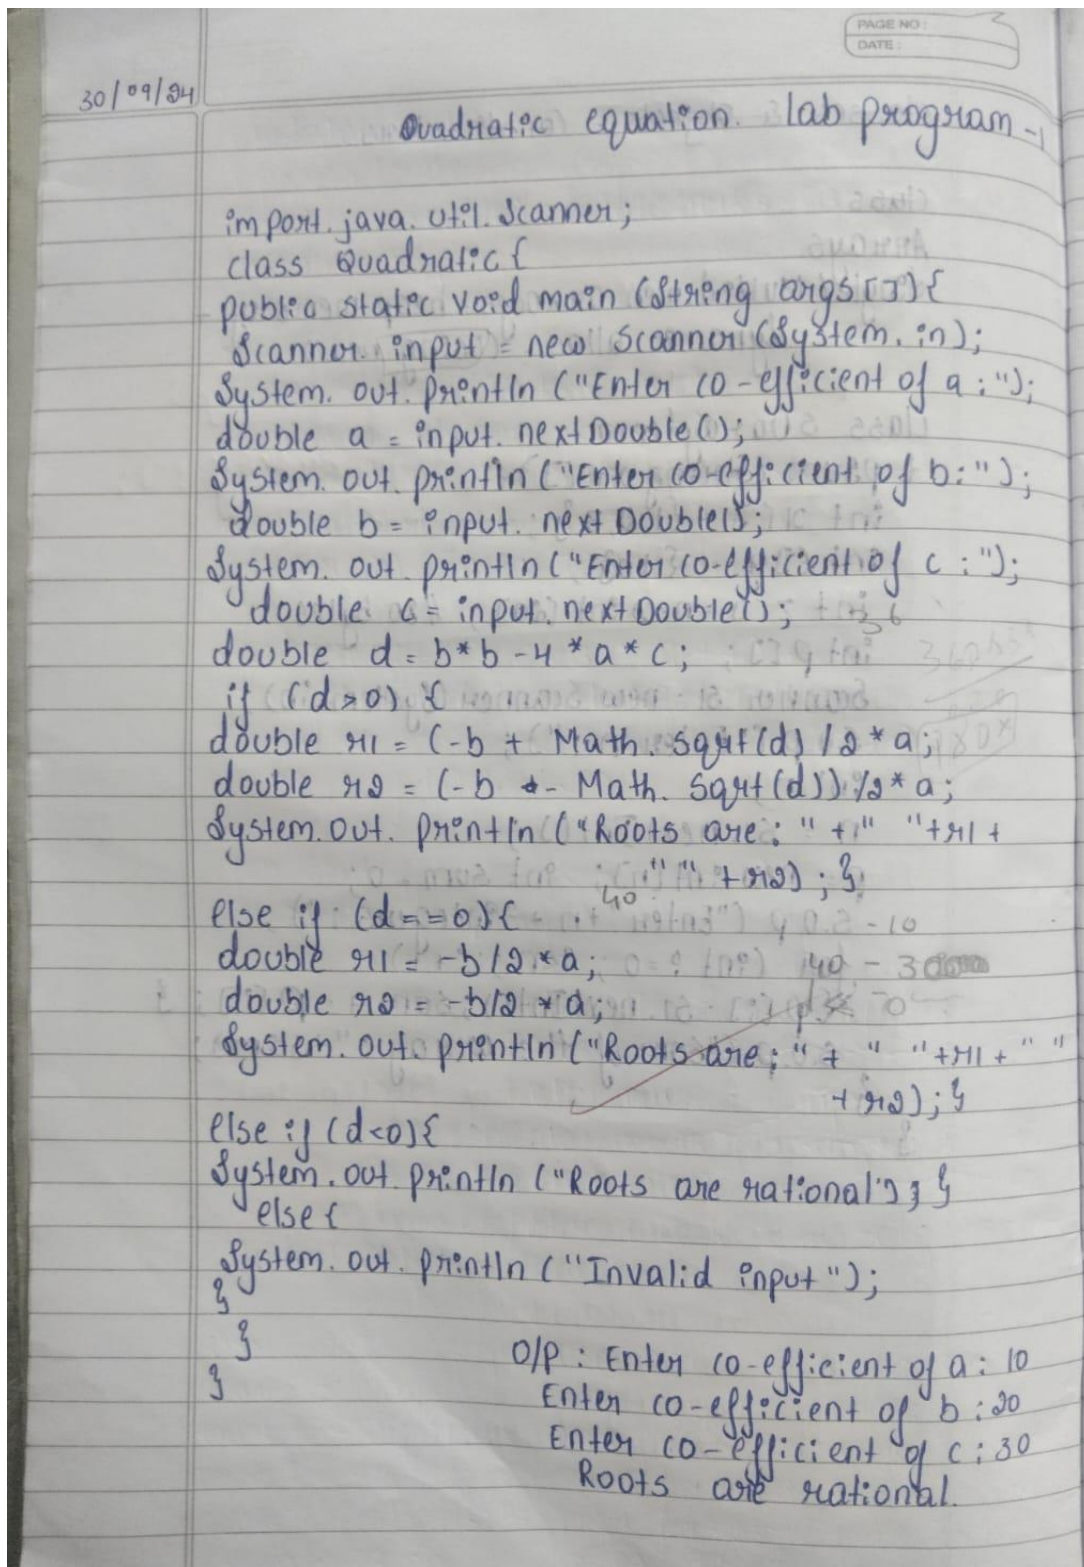 PAGE NO:
DATE:
30/09/24
Quadratic equation. lab program -1
import. java. util. Scanner;
class Quadratic {
public static void main (String args []){
Scanner. input = new Scanner (System. in);
System. out. println ("Enter co-efficient of a:");
double a = input. nextDouble();
System. out. println ("Enter co-efficient of b:");
double b = input. nextDouble();
System. out. println ("Enter co-efficient of c :");
double c = input. nextDouble();
double d = b*b - 4 *a * c;
if (d>0) {
double r1 = (-b + Math. sqrt(d) /2 * a;
double r2 = (-b - Math. sqrt (d)) /2* a;
System. out. println ("Roots are: " + " "+r1 +
" " + r2) ; }
40
else if (d==0){
double r1 = -b/2 * a; 40 - 3
double r2 = -b/2 * a;
System. out. println ("Roots are: " + " "+r1+ " "
+ r2) ; }
else if (d<0){
System. out. println ("Roots are rational"); }
else {
System. out. println ("Invalid input");
}
}
}
O/P : Enter co-efficient of a: 10
Enter co-efficient of b:20
Enter co-efficient of c: 30
Roots are rational.